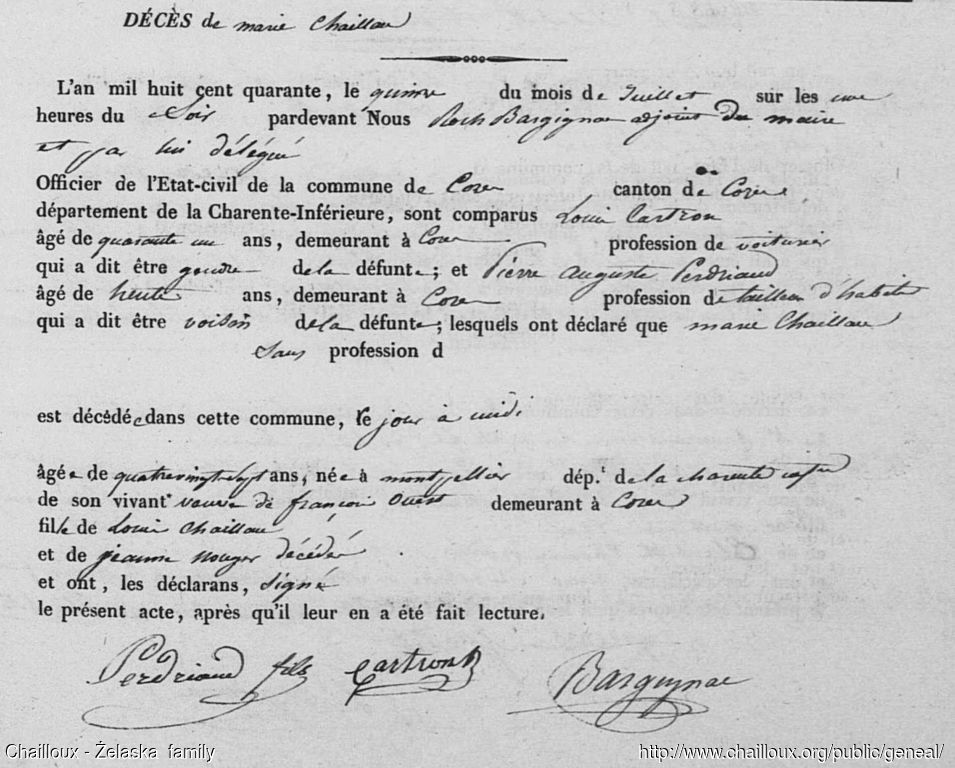 DÉCÈS de marie Chaillou
L'an mil huit cent quarante, le quinze du mois de Juillet sur les une
heures du Soir pardevant Nous Roch Bargignac adjoint du maire
et par lui délégué
Officier de l'Etat-civil de la commune de Coze canton de Coze
département de la Charente-Inférieure, sont comparus Louis Cartron
âgé de quarante un ans, demeurant à Coze profession de voiturier
qui a dit être gendre de la défunte; et Pierre auguste Perdriaud
âgé de trente ans, demeurant à Coze profession de tailleur d'habits
qui a dit être voisin de la défunte; lesquels ont déclaré que marie Chaillou
Sans profession d
est décédée dans cette commune, ce jour à midi
âgée de quatrevingt sept ans, née à montpellier dép.t de la charente infre
de son vivant veuve de françois Ouest demeurant à Coze
fille de Louis Chaillou
et de jeanne décédés
et ont, les déclarans, signé
le présent acte, après qu'il leur en a été fait lecture.
Perdriaud fils Cartron Bargignac
Chailloux - Żelaska family http://www.chailloux.org/public/geneal/